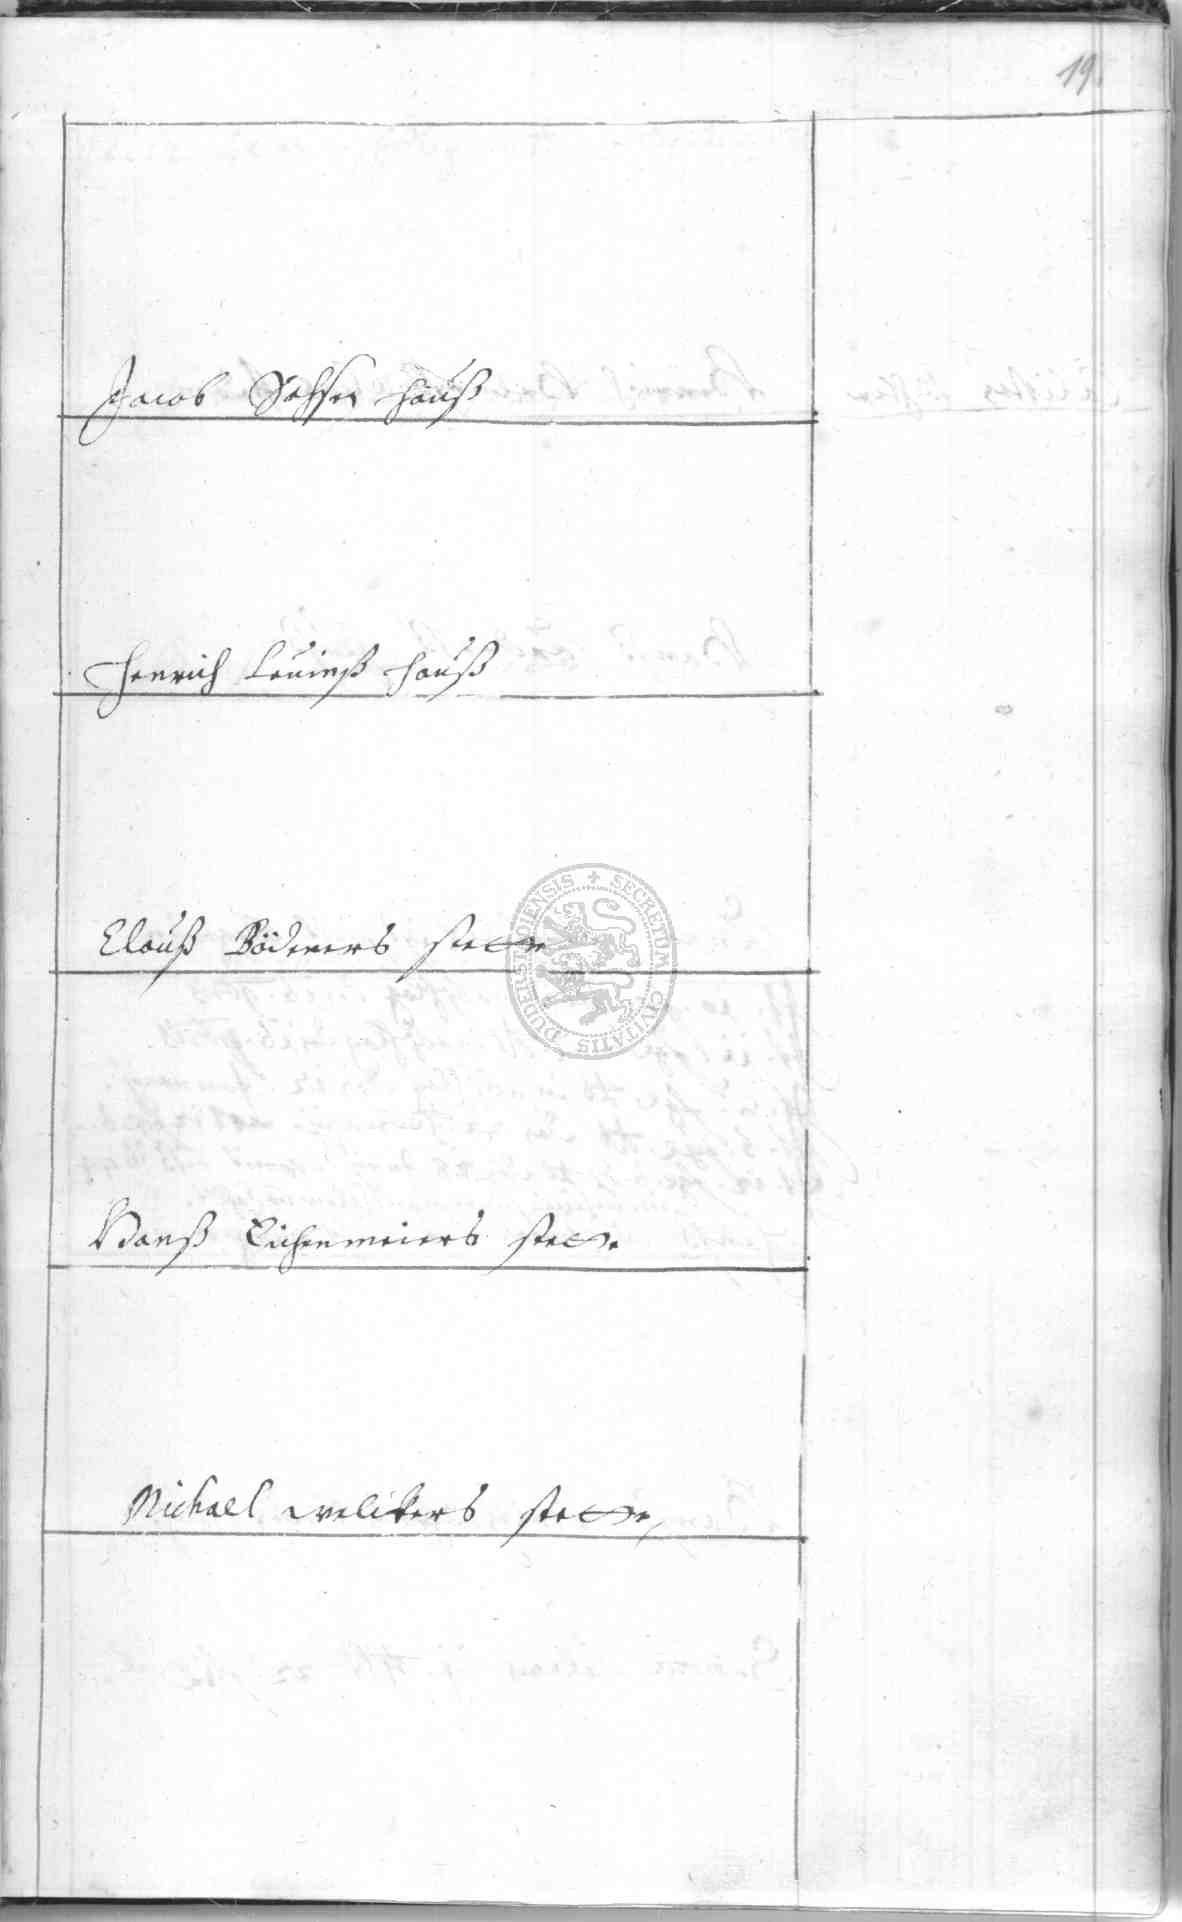 19.
Jacob Sachsen hauß
Henrich Leuinß hauß
Clauß Bödeners stette
Hanß Eichenmeiers stette
Michael welikers stette
SECRETUM CIVITATIS DUDERSTADENSIS